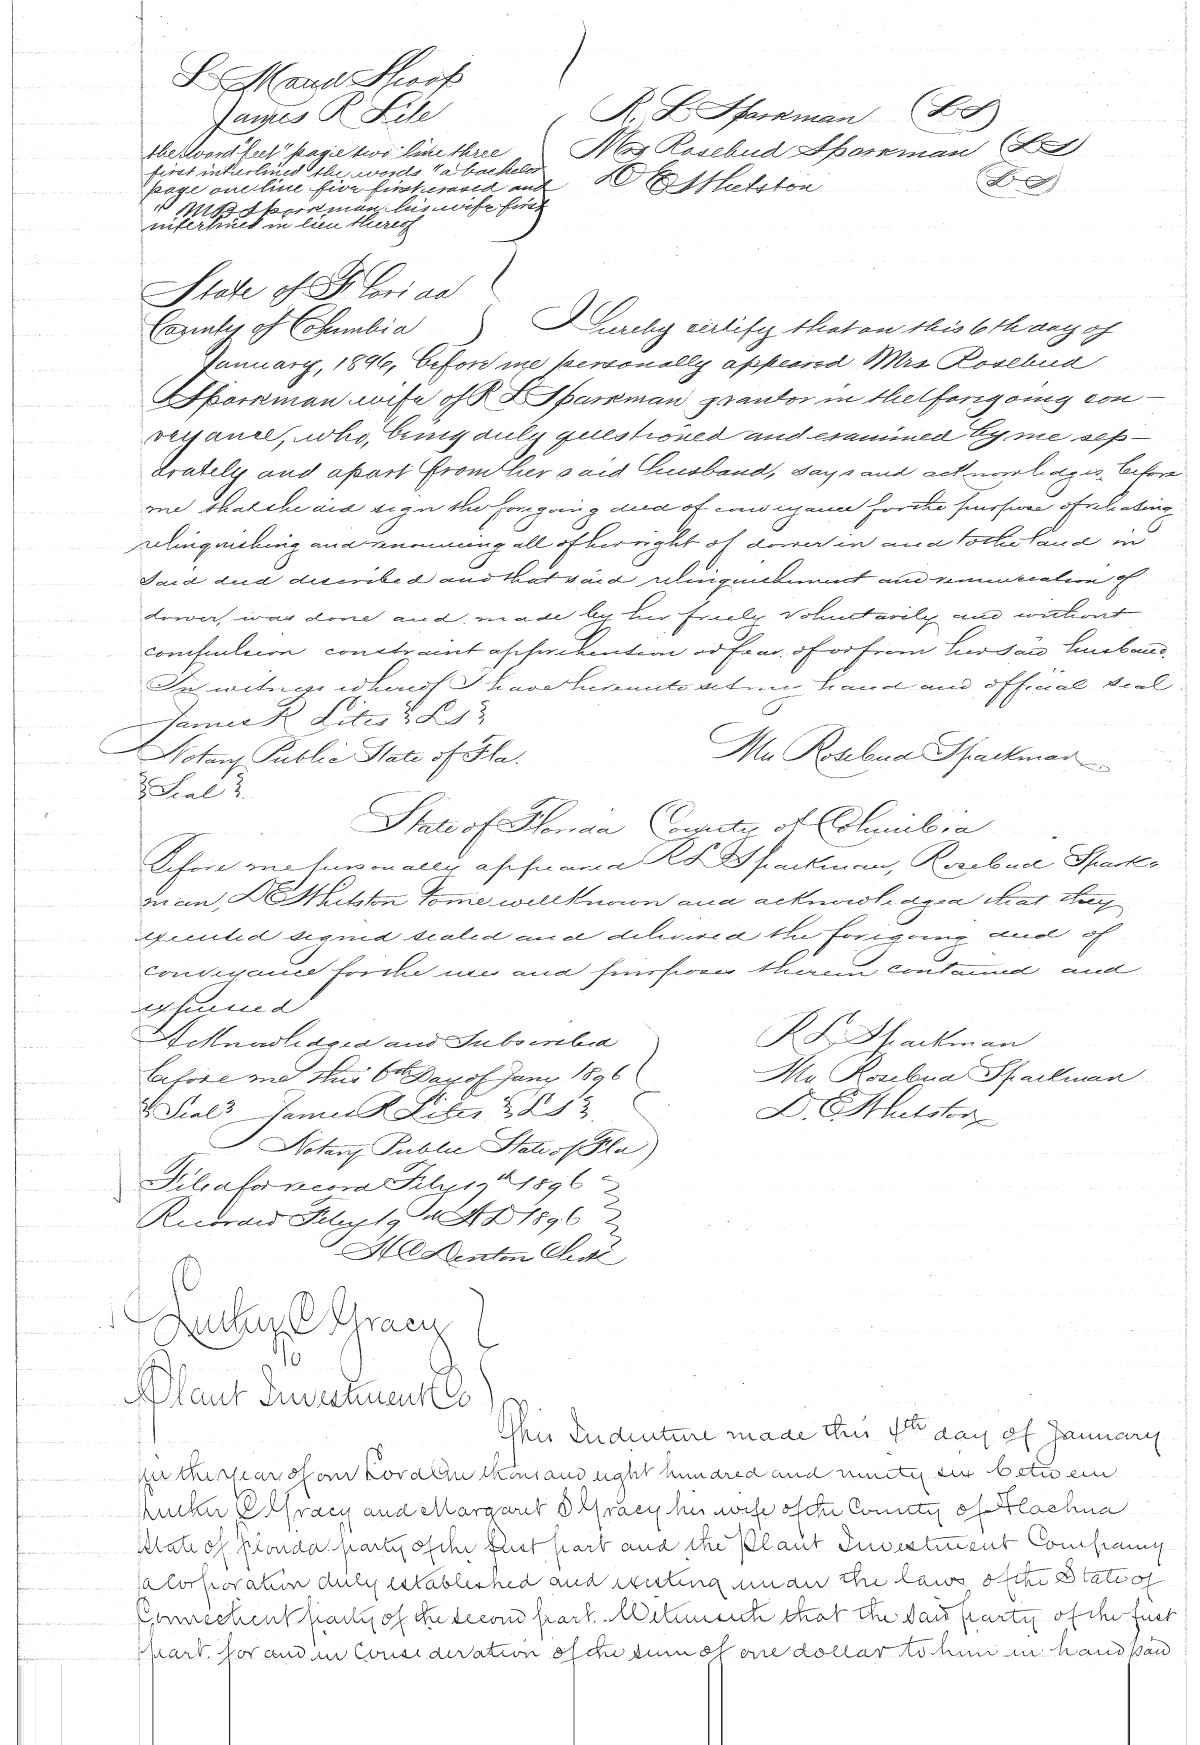 L Maud Shoop
James R Lile
the word "feet" page two line three
first interlined the words "a bachelor
page one line five first erased and
" M B Sparkman his wife first
interlined in lieu thereof
R. L Sparkman (LS)
Mrs Rosebud Sparkman (LS)
D E Whetston (LS)
State of Florida
County of Columbia ) I hereby certify that on this 6th day of
January, 1896, before me personally appeared Mrs Rosebud
Sparkman wife of R L Sparkman grantor in the foregoing con-
veyance, who, being duly questioned and examined by me sep-
erately and apart from her said husband, says and acknowledges, before
me that she did sign the foregoing deed of conveyance for the purpose of releasing
relinquishing and renouncing all of her right of dower in and to the land in
said deed described and that said relinquishment and renunciation of
dower, was done and made by her freely voluntarily and without
compulsion constraint apprehention or fear of or from her said husband.
In witness whereof I have hereunto set my hand and official seal
James R Lites {LS}
Notary Public State of Fla.
{Seal}.
Mrs Rosebud Sparkman
State of Florida County of Columbia
Before me personally appeared R L Sparkman, Rosebud Spark-
man, D E Whetston to me well known and acknowledged that they
executed signed sealed and delivered the foregoing deed of
conveyance for the uses and purposes therein contained and
expressed
Acknowledged and Subscribed
before me this 6th Day of Jany 1896
{Seal} James R Lites {LS}
Notary Public State of Fla
R L Sparkman
Mrs Rosebud Sparkman
D. E Whetston
Filed for record Feby 19th 1896
Recorded Feby 19th AD 1896
H C Denton Clerk
Lucker C Gracy
To
Plant Investment Co
This Indenture made this 4th day of January
in the year of our Lord One thousand eight hundred and ninety six between
Lucker C Gracy and Margaret S Gracy his wife of the County of Alachua
State of Florida party of the first part and the Plant Investment Company
a Corporation duly established and existing under the laws of the State of
Connecticut party of the second part. Witnesseth that the said party of the first
part. for and in consideration of the sum of one dollar to him in hand paid